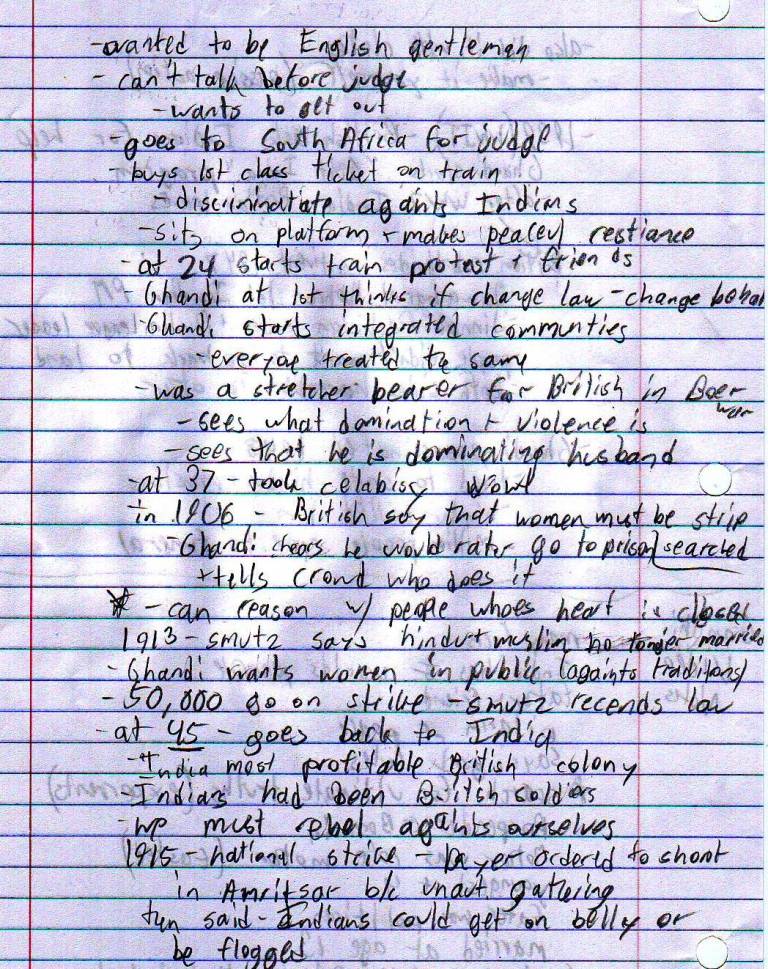 -wanted to be English gentleman
- can't talk before judge
-wants to get out
-goes to South Africa for judge
-buys 1st class ticket on train
- discriminatiate agants Indians
-sits on platform + makes peaceful restiance
-at 24 starts train protest + friends
- Ghandi at 1st thinks if change law - change behav
-Ghandi starts integrated communties
-everyone treated the same
-was a stretcher bearer for British in Boer war
-sees what domination + violence is
-sees that he is dominating husband
-at 37 - took celabisy vowl
in 1906 - British say that women must be strip searched
-Ghandi chears he would rater go to prison
+tells crowd who does it
* - can reason w/ people whoes heart is closed
1913 - smutz says hindu + muslim no longer married
- Ghandi wants women in public (againts traditions)
- 50,000 go on strike - smutz recends law
-at 45 - goes back to India
-India most profitable British colony
-Indians had been British soldiers
-we must rebel agaitts ourselves
1915 - national strike - Dayer ordered to shoot
in Amritsar b/c unaut. gathering
tun said - Indians could get on belly or
be flogged